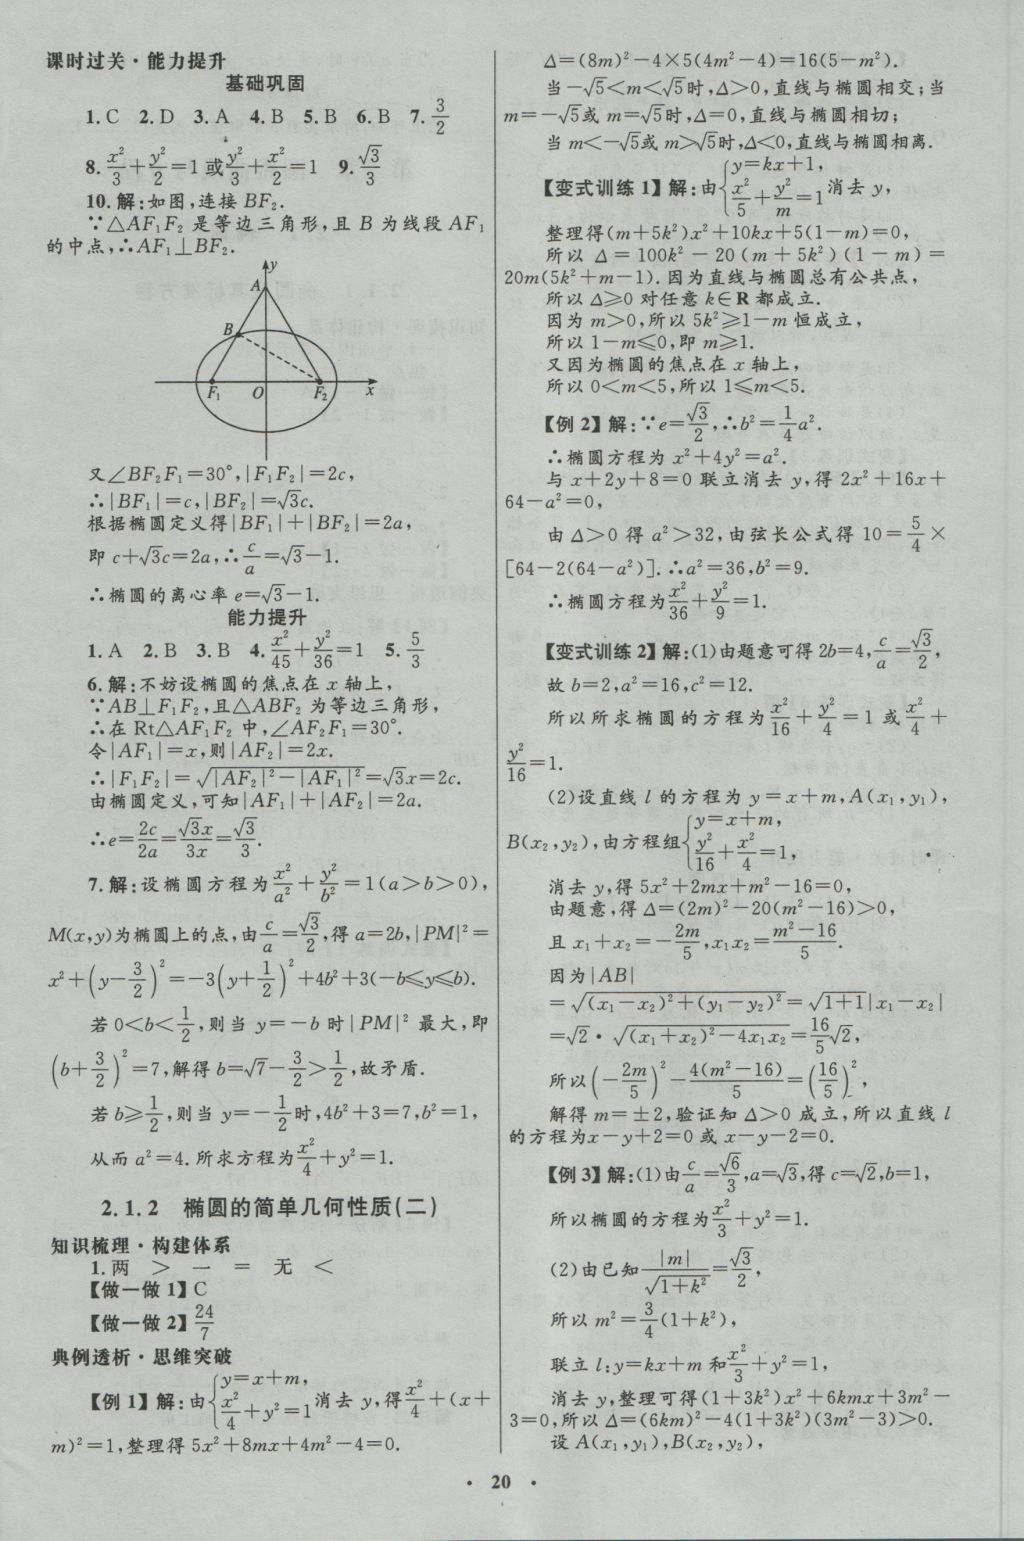 课时过关·能力提升
基础巩固
1. C  2. D  3. A  4. B  5. B  6. B  7. 3/2
8. x²/3+y²/2=1 或 y²/3+x²/2=1  9. √3/3
10. 解:如图,连接 BF₂.
∵△AF₁F₂ 是等边三角形,且 B 为线段 AF₁
的中点,∴AF₁⊥BF₂.
y
A
B
F₁ O F₂ x
又∠BF₂F₁=30°,|F₁F₂|=2c,
∴|BF₁|=c,|BF₂|=√3c.
根据椭圆定义得|BF₁|+|BF₂|=2a,
即 c+√3c=2a,∴c/a=√3-1.
∴椭圆的离心率 e=√3-1.
能力提升
1. A  2. B  3. B  4. x²/45+y²/36=1  5. 5/3
6. 解:不妨设椭圆的焦点在 x 轴上,
∵AB⊥F₁F₂,且△ABF₂ 为等边三角形,
∴在 Rt△AF₁F₂ 中,∠AF₂F₁=30°.
令|AF₁|=x,则|AF₂|=2x.
∴|F₁F₂|=√(|AF₂|²-|AF₁|²)=√3x=2c.
由椭圆定义,可知|AF₁|+|AF₂|=2a.
∴e=2c/2a=√3x/3x=√3/3.
7. 解:设椭圆方程为x²/a²+y²/b²=1(a>b>0),
M(x,y)为椭圆上的点,由c/a=√3/2,得 a=2b,|PM|²=
x²+(y-3/2)²=-3(y+1/2)²+4b²+3(-b≤y≤b).
若 0<b<1/2,则当 y=-b 时|PM|² 最大,即
(b+3/2)²=7,解得 b=√7-3/2>1/2,故矛盾.
若 b≥1/2,则当 y=-1/2时,4b²+3=7,b²=1,
从而 a²=4. 所求方程为x²/4+y²=1.
2.1.2 椭圆的简单几何性质(二)
知识梳理·构建体系
1. 两 > 一 = 无 <
【做一做 1】C
【做一做 2】24/7
典例透析·思维突破
【例 1】解:由{y=x+m, x²/4+y²=1 消去 y,得x²/4+(x+
m)²=1,整理得 5x²+8mx+4m²-4=0.
Δ=(8m)²-4×5(4m²-4)=16(5-m²).
当-√5<m<√5时,Δ>0,直线与椭圆相交;当
m=-√5或 m=√5时,Δ=0,直线与椭圆相切;
当 m<-√5或 m>√5时,Δ<0,直线与椭圆相离.
【变式训练 1】解:由{y=kx+1, x²/5+y²/m=1 消去 y,
整理得(m+5k²)x²+10kx+5(1-m)=0,
所以 Δ=100k²-20(m+5k²)(1-m)=
20m(5k²+m-1). 因为直线与椭圆总有公共点,
所以 Δ≥0 对任意 k∈R 都成立.
因为 m>0,所以 5k²≥1-m 恒成立,
所以 1-m≤0,即 m≥1.
又因为椭圆的焦点在 x 轴上,
所以 0<m<5,所以 1≤m<5.
【例 2】解:∵e=√3/2,∴b²=1/4a².
∴椭圆方程为 x²+4y²=a².
与 x+2y+8=0 联立消去 y,得 2x²+16x+
64-a²=0,
由 Δ>0 得 a²>32,由弦长公式得 10=5/4×
[64-2(64-a²)]. ∴a²=36,b²=9.
∴椭圆方程为x²/36+y²/9=1.
【变式训练 2】解:(1)由题意可得 2b=4,c/a=√3/2,
故 b=2,a²=16,c²=12.
所以所求椭圆的方程为x²/16+y²/4=1 或x²/4+
y²/16=1.
(2)设直线 l 的方程为 y=x+m,A(x₁,y₁),
B(x₂,y₂),由方程组{y=x+m, y²/16+x²/4=1,
消去 y,得 5x²+2mx+m²-16=0,
由题意,得 Δ=(2m)²-20(m²-16)>0,
且 x₁+x₂=-2m/5,x₁x₂=(m²-16)/5.
因为|AB|
=√((x₁-x₂)²+(y₁-y₂)²)=√(1+1)|x₁-x₂|
=√2·√((x₁+x₂)²-4x₁x₂)=16/5√2,
所以(-2m/5)²-4(m²-16)/5=(16/5)²,
解得 m=±2,验证知 Δ>0 成立,所以直线 l
的方程为x-y+2=0 或 x-y-2=0.
【例 3】解:(1)由c/a=√6/3,a=√3,得 c=√2,b=1,
所以椭圆的方程为x²/3+y²=1.
(2)由已知|m|/√(1+k²)=√3/2,
所以 m²=3/4(1+k²),
联立 l:y=kx+m 和x²/3+y²=1,
消去 y,整理可得(1+3k²)x²+6kmx+3m²-
3=0,所以 Δ=(6km)²-4(1+3k²)(3m²-3)>0.
设 A(x₁,y₁),B(x₂,y₂),
· 20 ·